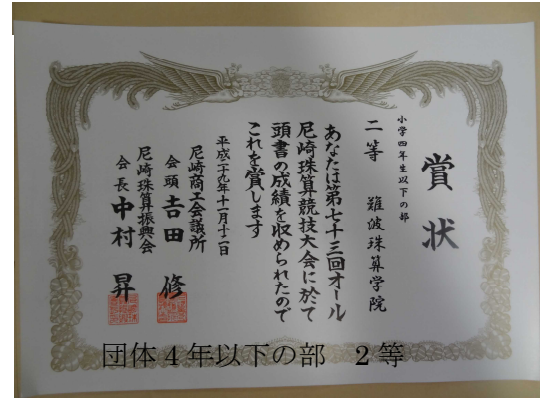 賞状
小学四年生以下の部
二等 難波珠算学院
あなたは第七十三回オール
尼崎珠算競技大会に於て
頭書の成績を収められたので
これを賞します
平成二九年十一月十二日
尼崎商工会議所
会頭 吉田 修
尼崎珠算振興会
会長 中村 昇
団体4年以下の部 2等